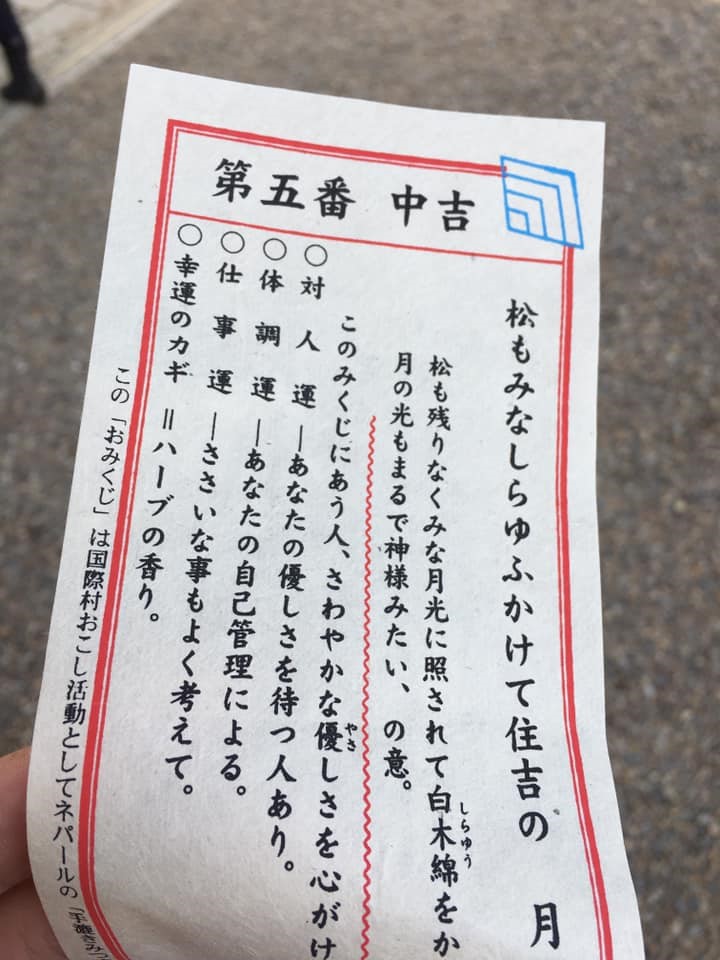 第五番 中吉
松もみなしらゆふかけて住吉の 月
松も残りなくみな月光に照されて白木綿をか
しらゆう
月の光もまるで神様みたい、の意。
このみくじにあう人、さわやかな優しさを心がけ
やさ
○対人運―あなたの優しさを待つ人あり。
○体調運―あなたの自己管理による。
○仕事運―ささいな事もよく考えて。
○幸運のカギ=ハーブの香り。
この「おみくじ」は国際村おこし活動としてネパールの「手漉きみつ